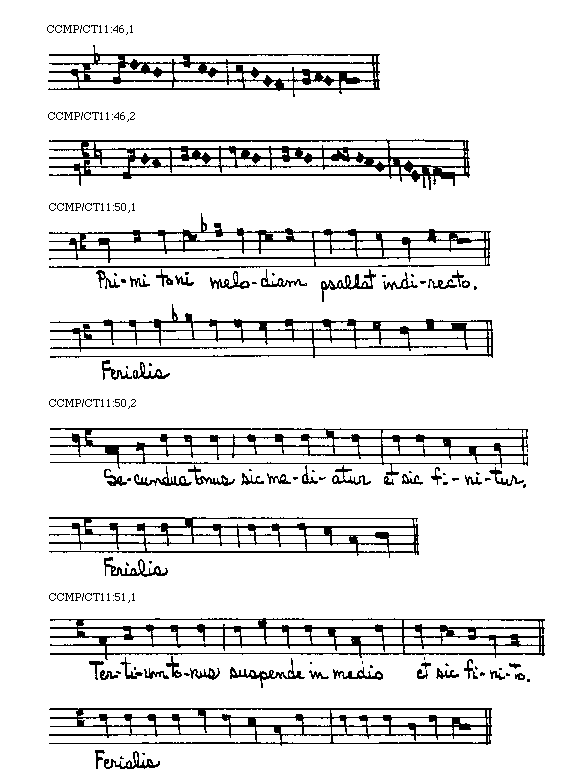 CCMP/CT11:46,1
CCMP/CT11:46,2
CCMP/CT11:50,1
Pri-mi toni melo-diam psallat indi-recto.
Ferialis
CCMP/CT11:50,2
Se-cundus tonus sic me-di-atur et sic fi-ni-tur.
Ferialis
CCMP/CT11:51,1
Ter-ti-um to-nus suspende in medio et sic fi-ni-to.
Ferialis